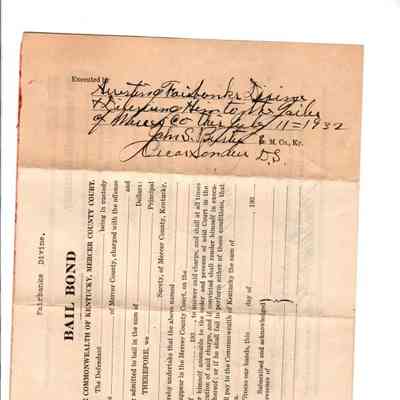 Executed by
Arresting Fairbanks Divine
& Delivering Him to the Jailer
of Mercer Co this July 11=1932
John S. B
S. M. Co., Ky.
Oscar Sanders D.S.
Fairbanks Divine.
BAIL BOND
COMMONWEALTH OF KENTUCKY, MERCER COUNTY COURT.
The Defendant being in custody
of Mercer County, charged with the offense
and
y admitted to bail in the sum of Dollars:
THEREFORE, we Principal
Surety, of Mercer County, Kentucky,
ereby undertake that the above named
appear in the Mercer County Court, on the
193 to answer said charge, and shall at all times
himself amenable to the order and process of said Court in the
cution of said charge, and if convicted shall render himself in execu-
thereof; or if he shall fail to perform either of these conditions, that
ll pay to the Commonwealth of Kentucky the sum of
Witness our hands, this day of 193
Submitted and acknowledged
resence of